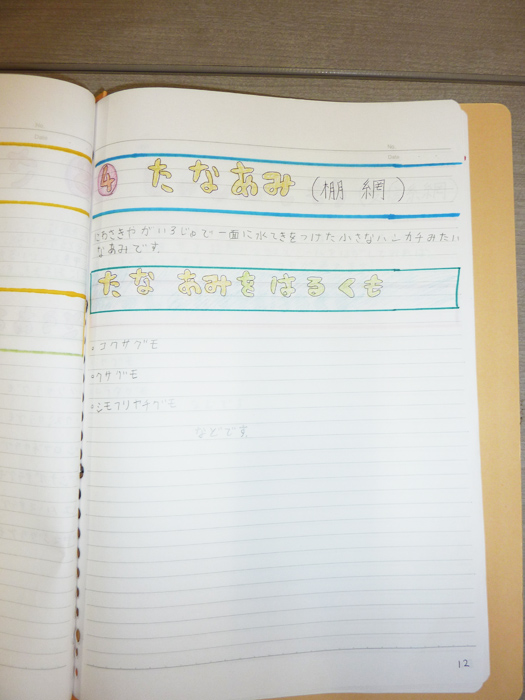 No.
Date
④ たなあみ (棚網)
にわさきやがいろじゅで一面に水てきをつけた小さなハンカチみたい
なあみです。
たなあみをはるくも
・コクサグモ
・クサグモ
・シモフリヤチグモ
などです。
12